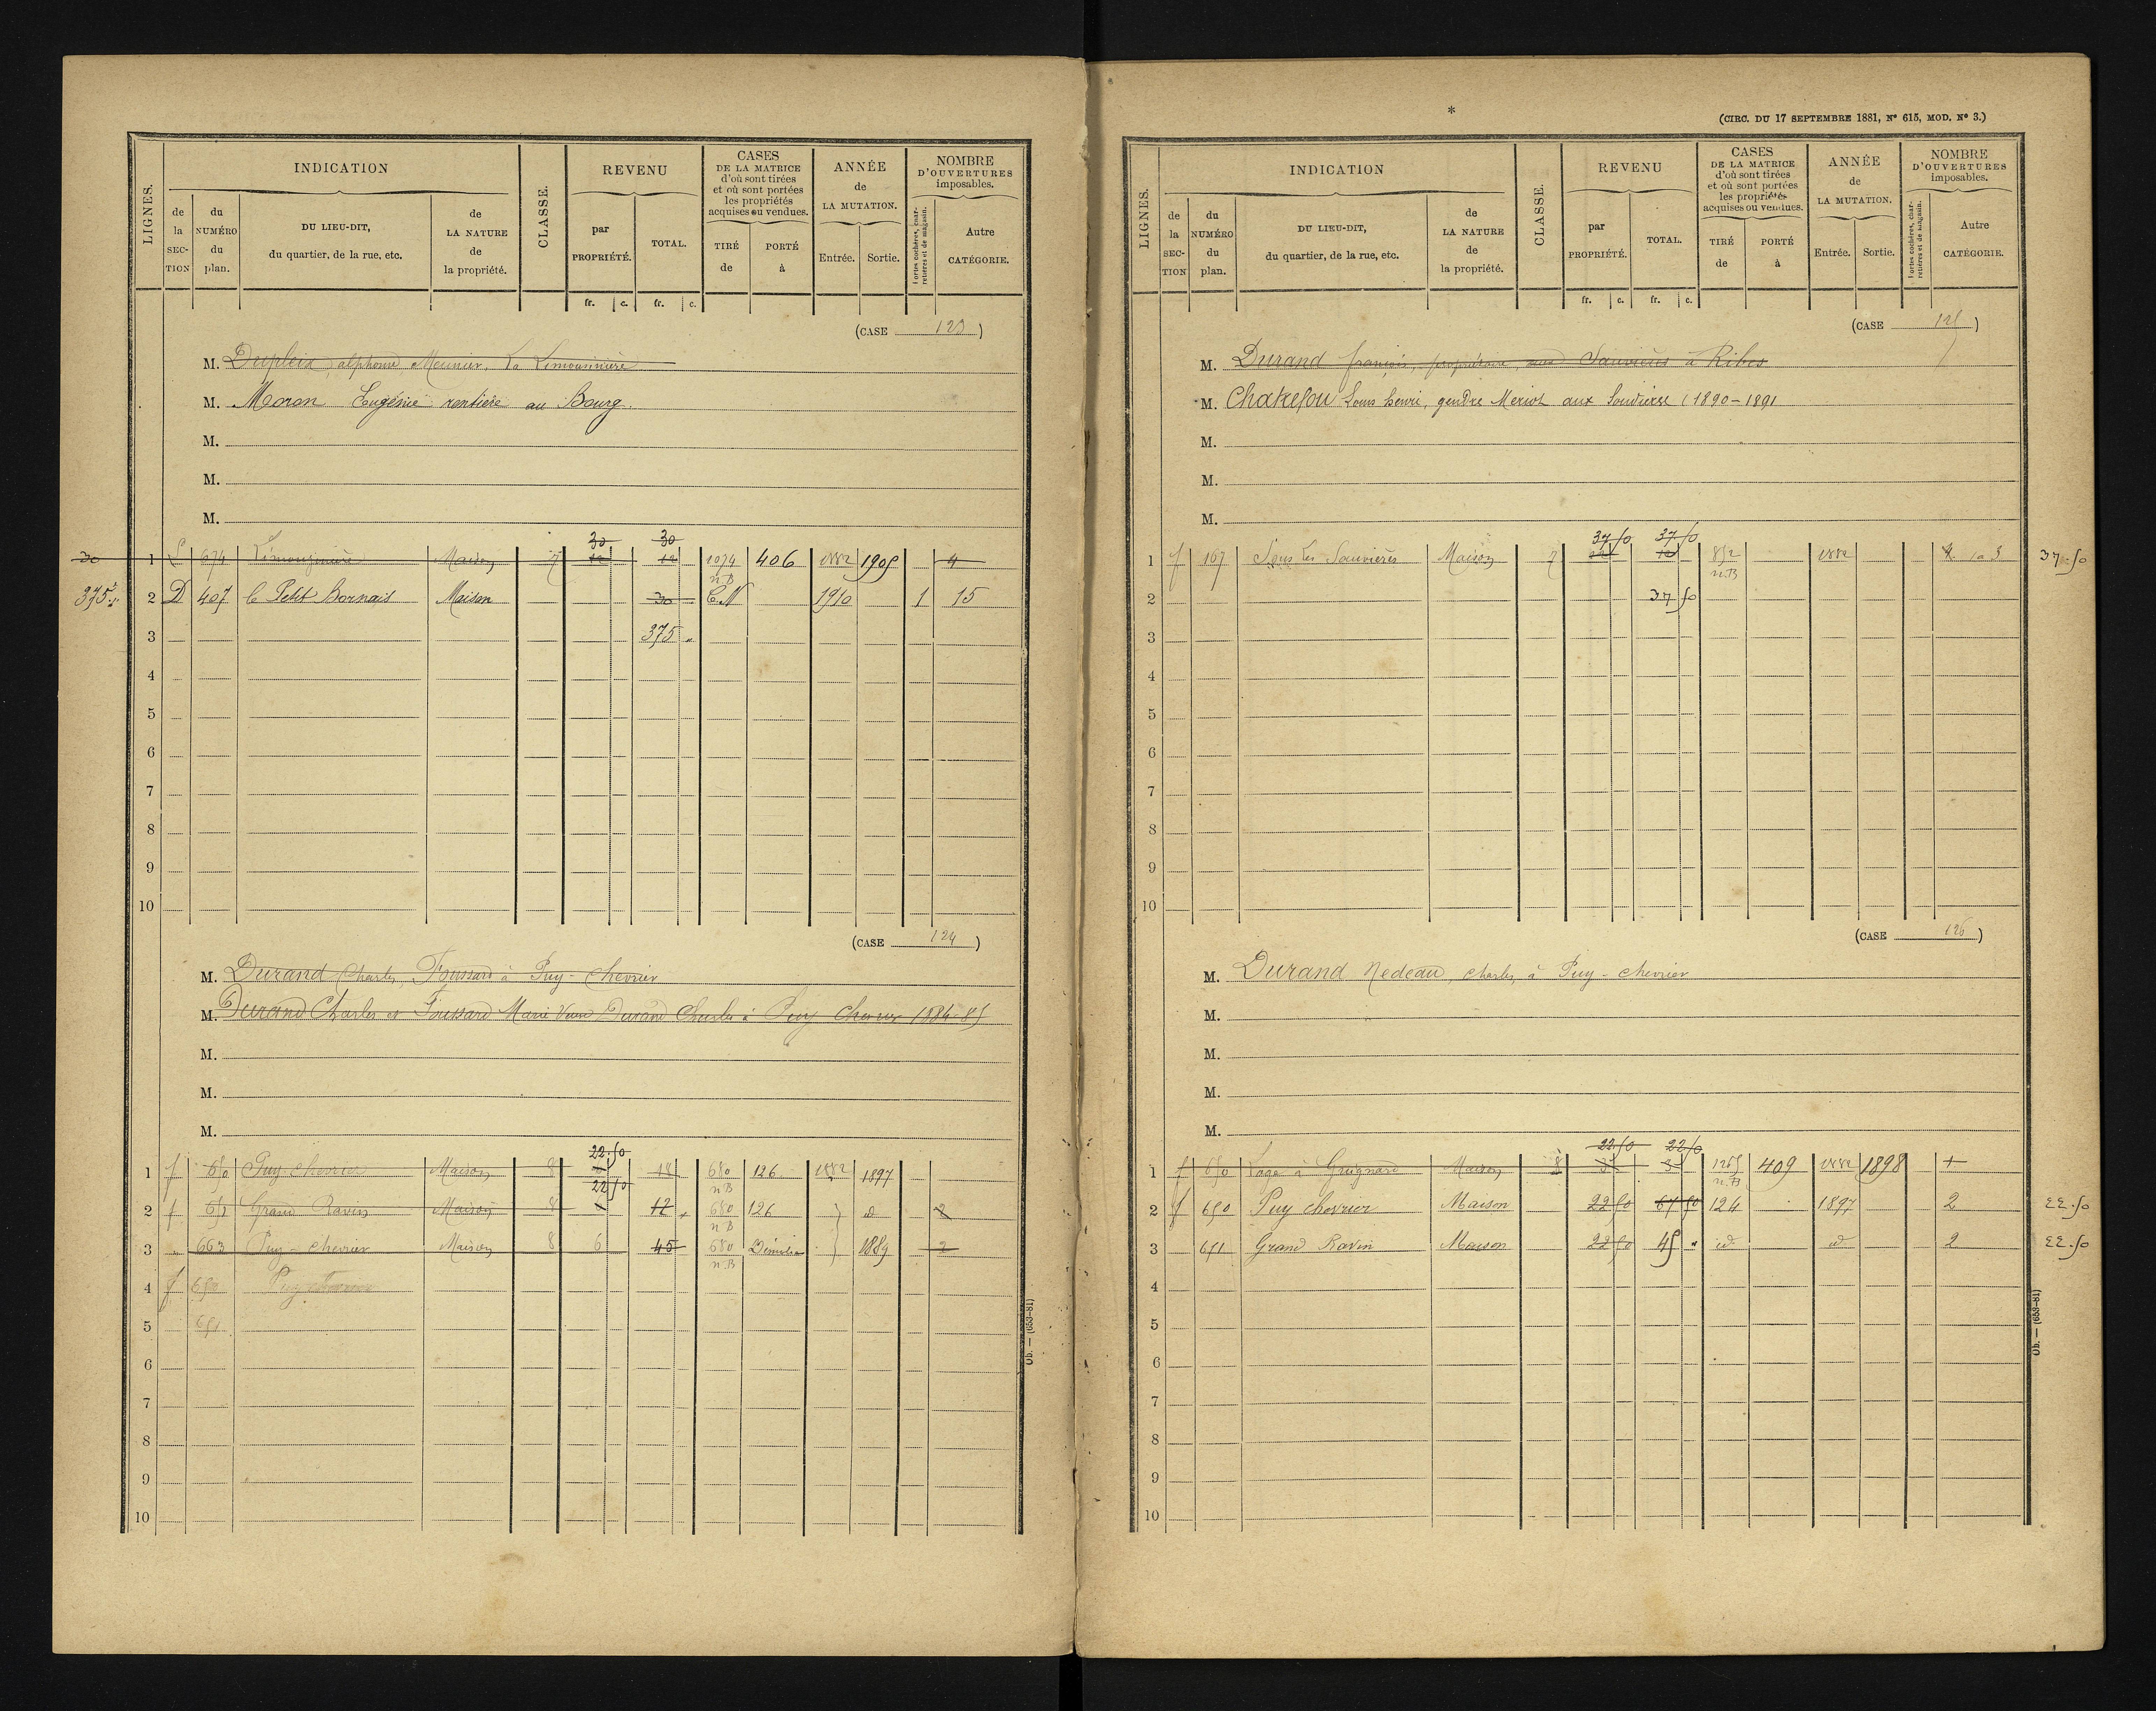 LIGNES.
INDICATION
de la SECTION
du NUMÉRO du plan.
DU LIEU-DIT, du quartier, de la rue, etc.
de LA NATURE de la propriété.
CLASSE.
REVENU
par PROPRIÉTÉ.
TOTAL.
CASES DE LA MATRICE d'où sont tirées et où sont portées les propriétés acquises ou vendues.
TIRÉ de
PORTÉ à
ANNÉE de LA MUTATION.
Entrée.
Sortie.
NOMBRE D'OUVERTURES imposables.
Portes cochères, charretières et de magasin.
Autre CATÉGORIE.
fr. c. fr. c.
(CASE 123)
M. Dupleix alphonse Meunier, La Limousinière
M. Moron Eugénie rentière au Bourg.
M.
M.
M.
30 30
30 1 674 Limousinière Maison 7 12 12 1074 n.B 406 1882 1905 4
375 2 D 407 Le Petit Bornais Maison 30 C.N 1910 1 15
3 375 "
4
5
6
7
8
9
10
(CASE 124)
M. Durand Charles, Foussard à Puy-chevrier
M. Durand Charles et Foussard Marie Veuve Durand Charles à Puy Chevrier 1884-85
M.
M.
M.
22.50
1 f 650 Puy-chevrier Maison 8 18 680 n.B 126 1882 1897
22 50
2 f 651 Grand Ravin Maison 8 12 680 n.B 126 d 2
3 " 663 Puy-chevrier Maison 8 6 45 680 n.B Démolie 1889 2
4 f 650
5 651
6
7
8
9
10
Ob. — (653-81)
*
(CIRC. DU 17 SEPTEMBRE 1881, N° 615, MOD. N° 3.)
LIGNES.
INDICATION
de la SECTION
du NUMÉRO du plan.
DU LIEU-DIT, du quartier, de la rue, etc.
de LA NATURE de la propriété.
CLASSE.
REVENU
par PROPRIÉTÉ.
TOTAL.
CASES DE LA MATRICE d'où sont tirées et où sont portées les propriétés acquises ou vendues.
TIRÉ de
PORTÉ à
ANNÉE de LA MUTATION.
Entrée.
Sortie.
NOMBRE D'OUVERTURES imposables.
Portes cochères, charretières et de magasin.
Autre CATÉGORIE.
fr. c. fr. c.
(CASE 125)
M. Durand françois, propriétaire, aux Sauvières à Ribes
M. Chatefou Louis henri, gendre Meriot aux Souvieres (1890-1891
M.
M.
M.
37 50 37 50
1 f 167 Sous les Sauvières Maison 7 12 12 852 n.B 1882 3 37.50
2 37 50
3
4
5
6
7
8
9
10
(CASE 126)
M. Durand Nedeau, charles, à Puy-chevrier
M.
M.
M.
M.
22.50 22 50
1 f 650 à Grignard Maison 8 3 1265 n.B 409 1882 1898 +
2 f 650 Puy chevrier Maison 22 50 67 50 124 1897 2 22.50
3 651 Grand Ravin Maison 22 50 45 " id id 2 22.50
4
5
6
7
8
9
10
Ob. — (653-81)